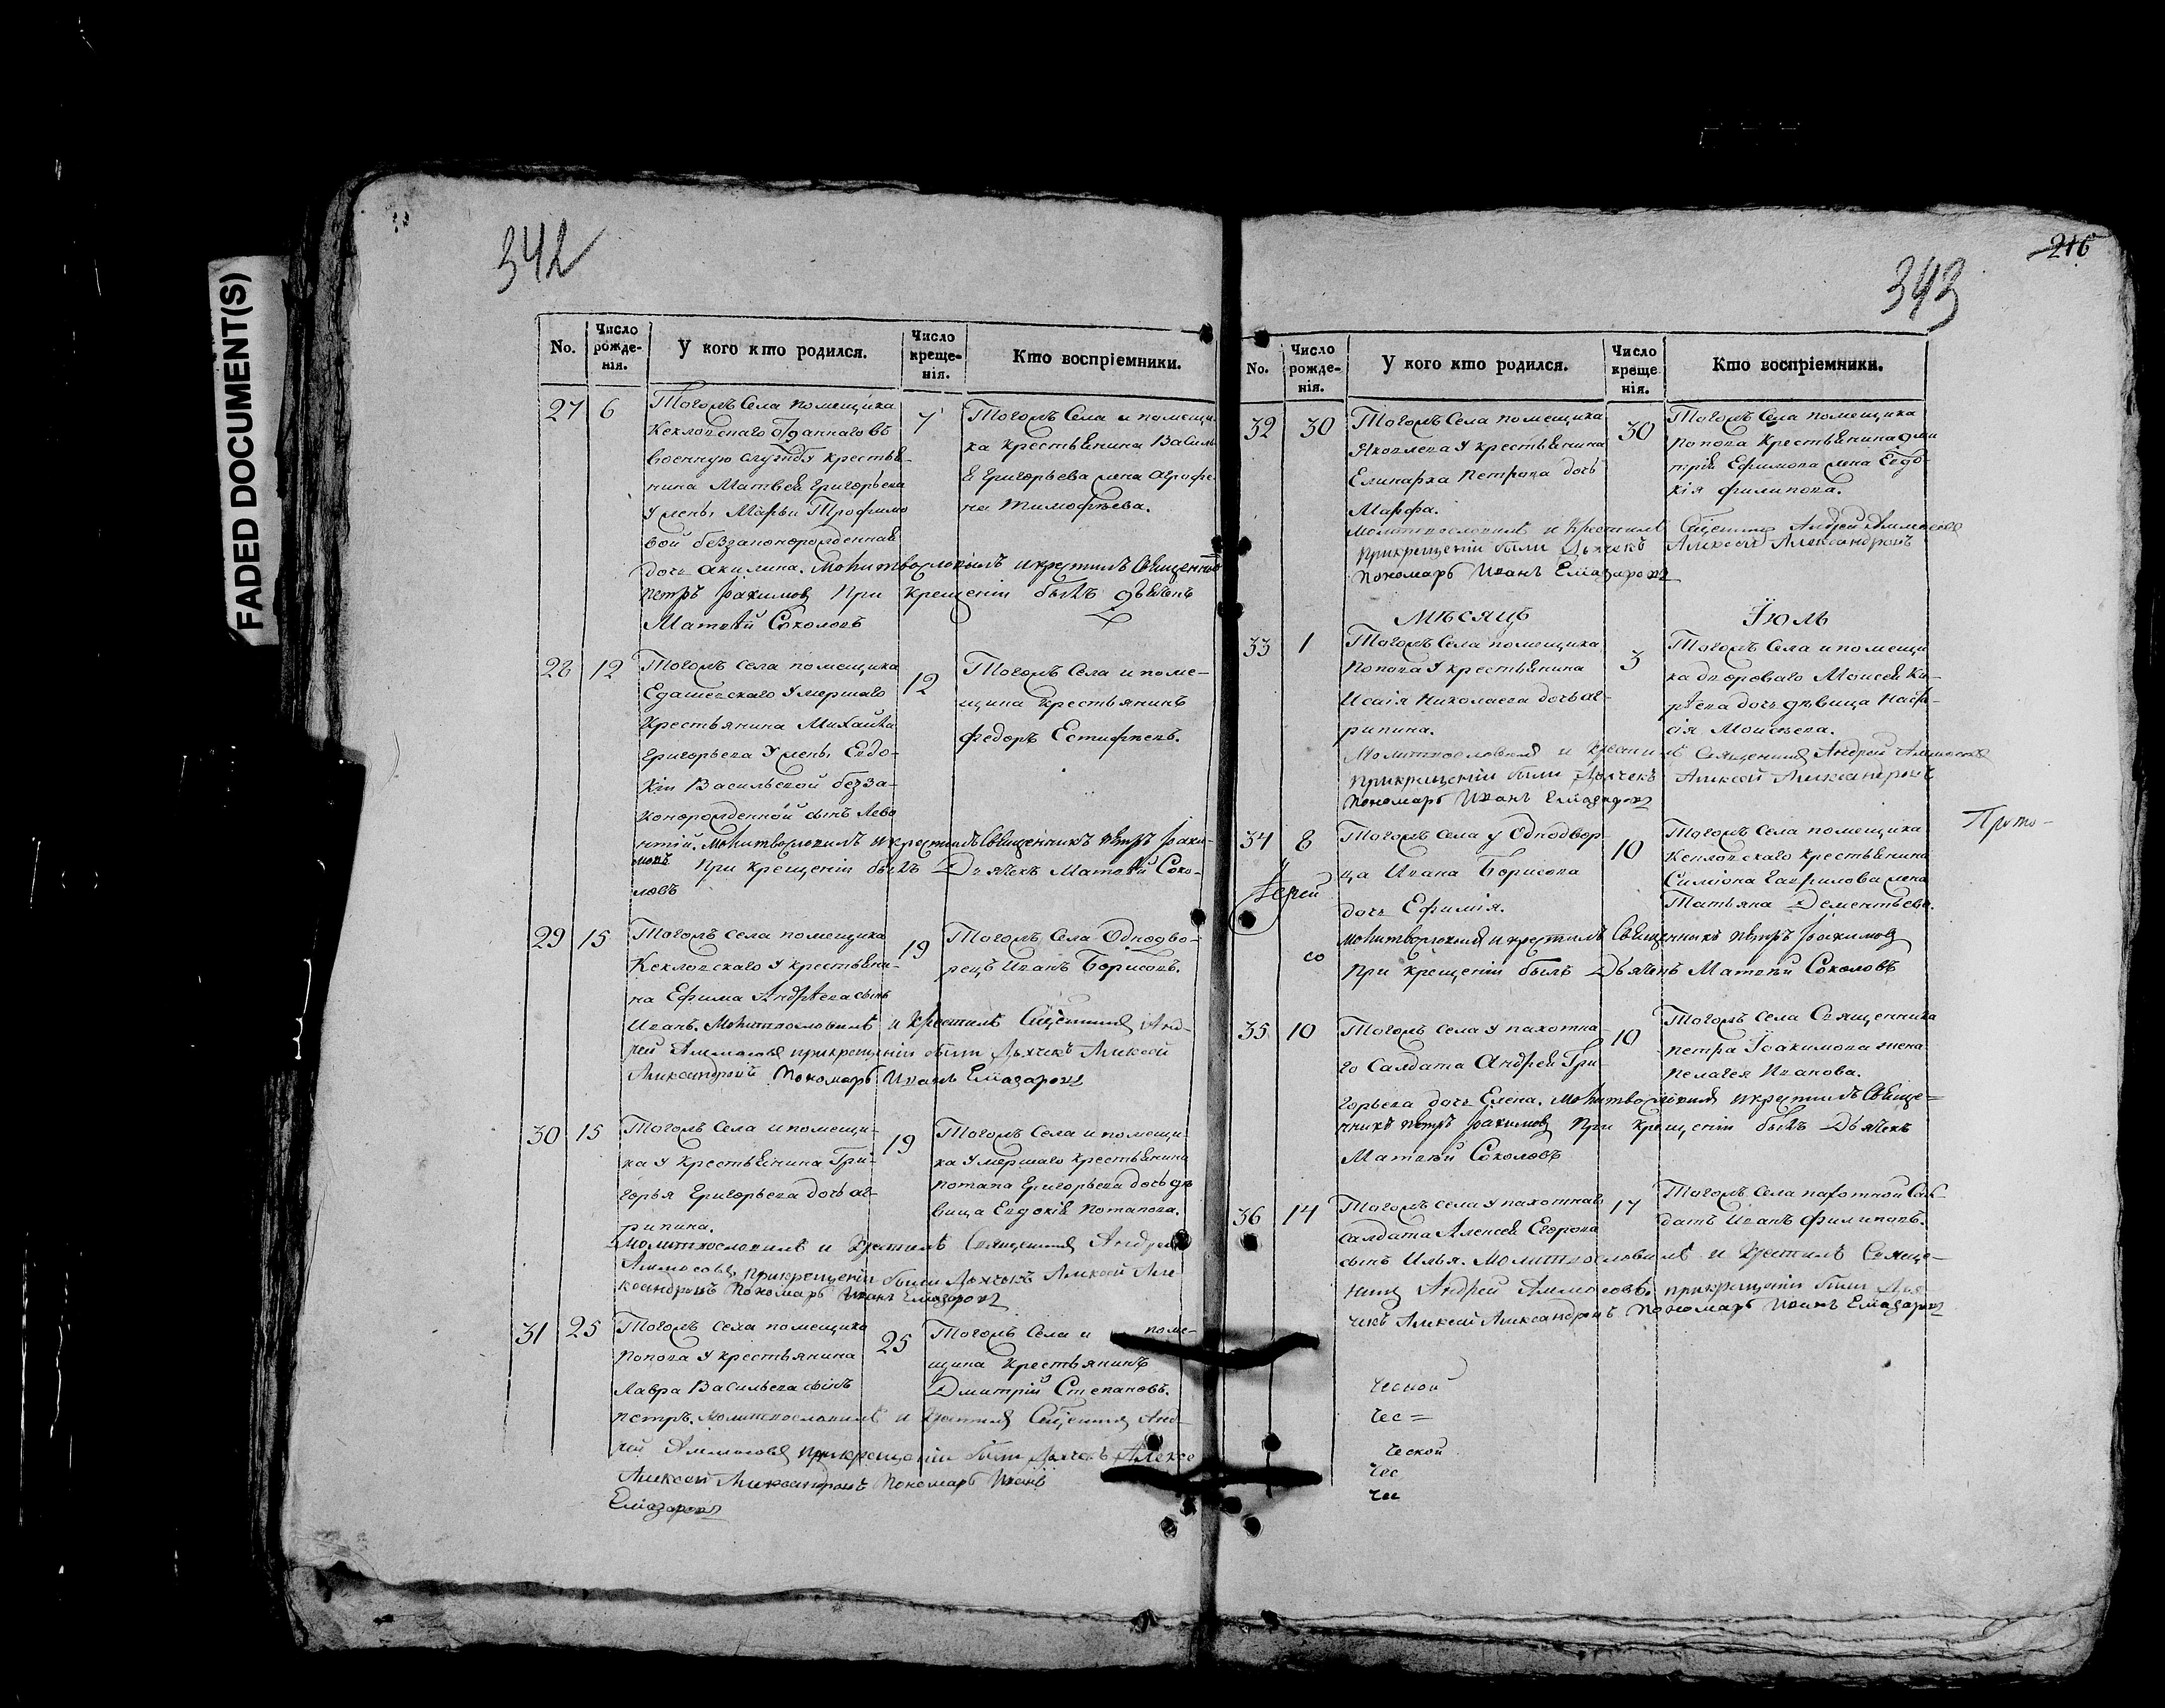 FADED DOCUMENT(S)
342
No.
Число рожде-нія.
У кого кто родился.
Число креще-нія.
Кто воспріемники.
27
6
Тогожъ Села помещика
Кекловскаго отданнаго въ
военную службу крестья-
нина Матвея Григорьева
у жены Марьи Трофимо
вой беззаконорожденная
дочь акилина. Молитвословилъ и крестилъ Священникъ
Петръ Іоакимовъ При крещеніи былъ дьячекъ
Матвѣй Соколовъ
7
Тогожъ Села и помещи-
ка крестьянина Василь
я Григорьева жена Агрофе
на Тимофѣева.
28
12
Тогожъ села помещика
умершаго
Крестьянина Михайла
Григорьева У жены Евдо-
кіи Васильевой безза-
конорожденной сынъ Лево
нтій. Молитвословилъ и крестилъ Священникъ Петръ Іоаки-
мовъ При Крещеніи былъ Дьячекъ Матвѣй Соко-
ловъ
12
Тогожъ Села и поме-
щика крестьянинъ
Федоръ Естифѣевъ.
29
15
Тогожъ села помещика
Кекловскаго У крестьяни-
на Ефима Андрѣева сынъ
Иванъ. Молитвословилъ и Крестилъ Священникъ Анд-
рей Аммосовъ прикрещеніи были Дьячекъ Алексѣй
Александровъ Пономарь Иванъ Елиазаровъ
19
Тогожъ Села Однодво-
рецъ Иванъ Борисовъ.
30
15
Тогожъ Села и помещи-
ка У Крестьянина Гри-
горья Григорьева дочь аг-
рипина.
Молитвословилъ и Крестилъ Священникъ Андрей
Аммосовъ, прикрещеніи были Дьячекъ Алексѣй Але
ксандровъ Пономарь Иванъ Елиазаровъ
19
Тогожъ Села и помещи-
ка Умершаго крестьянина
Потапа Григорьева дочь дѣ
вица Евдокія Потапова.
31
25
Тогожъ Села помещика
Попова У крестьянина
Лавра Васильева сынъ
петръ. Молитвословилъ и Крестилъ Священникъ Анд-
рей Аммосовъ прикрещеніи были Дьячекъ Алексе
Алексѣй Александровъ Пономарь Иванъ
Елиазаровъ
25
Тогожъ Села и поме-
щика крестьянинъ
Дмитрій Степановъ.
216
343
No.
Число рожде-нія.
У кого кто родился.
Число креще нія.
Кто воспріемники.
32
30
Тогожъ Села помещика
Яковлева У крестьянина
Елинарха Петрова дочь
Марфа.
Молитвословилъ и Крестилъ Священникъ Андрей Аммосовъ
прикрещеніи были Дьячекъ Алексѣй Александровъ
Пономарь Иванъ Елиазаровъ
30
Тогожъ Села помещика
Попова Крестьянина дми
трія Ефимова жена Евдо-
кія филипова.
мѣсяцъ Іюль
33
1
Тогожъ Села помещика
Попова У крестьянина
Исаія Николаева дочь аг-
рипина.
Молитвословилъ и крестилъ Священникъ Андрей Аммосовъ
прикрещеніи были Дьячекъ Алексѣй Александровъ
Пономарь Иванъ Елиазаровъ
3
Тогожъ Села и помещи
ка двороваго Моисея Ки-
рѣева дочь дѣвица Насѣ-
сія Моисѣева.
Прото-
34
8
Іерей
со
Тогожъ Села у Однодвор-
ца Ивана Борисова
дочь Ефимія.
Молитвословилъ и крестилъ Священникъ Петръ Іоакимовъ
При Крещеніи былъ Дьячекъ Матвѣй Соколовъ
10
Тогожъ Села помещика
Кекловскаго крестьянина
Симіона Гаврилова жена
Татьяна Дементьева.
35
10
Тогожъ села у пахотна-
го Салдата Андрея Гри
горьева дочь Елена. Молитвословилъ и крестилъ Свяще=
нникъ Петръ Іоакимовъ При Крещеніи былъ Дьячекъ
Матвѣй Соколовъ
10
Тогожъ Села Священника
петра Іоакимова жена
Пелагея Иванова.
36
14
Тогожъ села у пахотнаго
салдата Алексея Егорова
сынъ Илья. Молитвословилъ и Крестилъ Свяще-
никъ Андрей Аммосовъ, прикрещеніи были Дья
чекъ Алексѣй Александровъ Пономарь Иванъ Елиазаровъ
17
Тогожъ Села пахотной Сал-
датъ Иванъ Филиповъ.
ческой
чес=
ческой
чес
чес